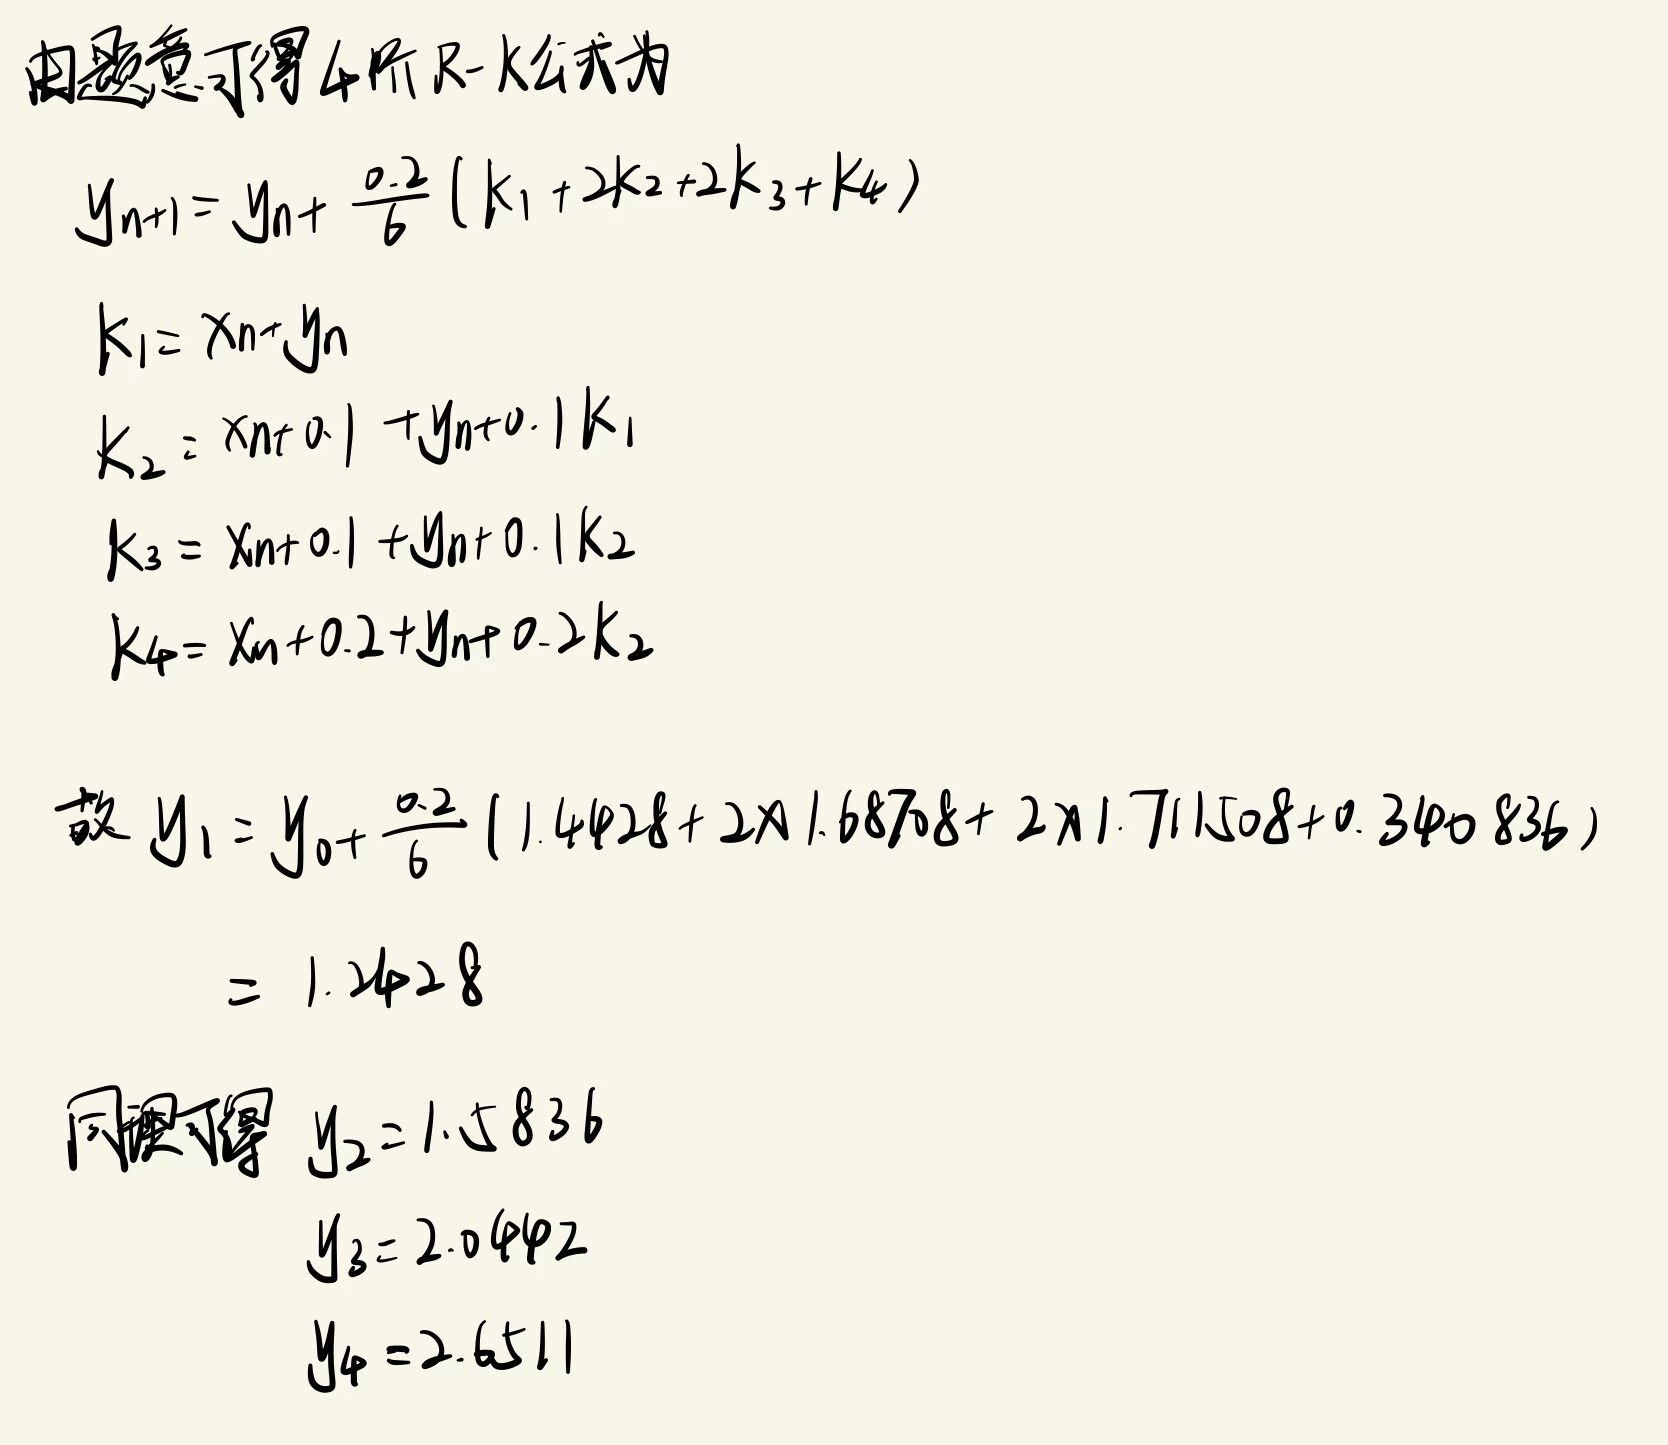 由题意可得4阶R-K公式为
yn+1 = yn + 0.2/6 (k1 + 2k2 + 2k3 + k4)
k1 = xn + yn
k2 = xn + 0.1 + yn + 0.1k1
k3 = xn + 0.1 + yn + 0.1k2
k4 = xn + 0.2 + yn + 0.2k2
故 y1 = y0 + 0.2/6 (1.4428 + 2×1.68708 + 2×1.711508 + 0.340836)
= 1.2428
同理可得 y2 = 1.5836
y3 = 2.0442
y4 = 2.6511